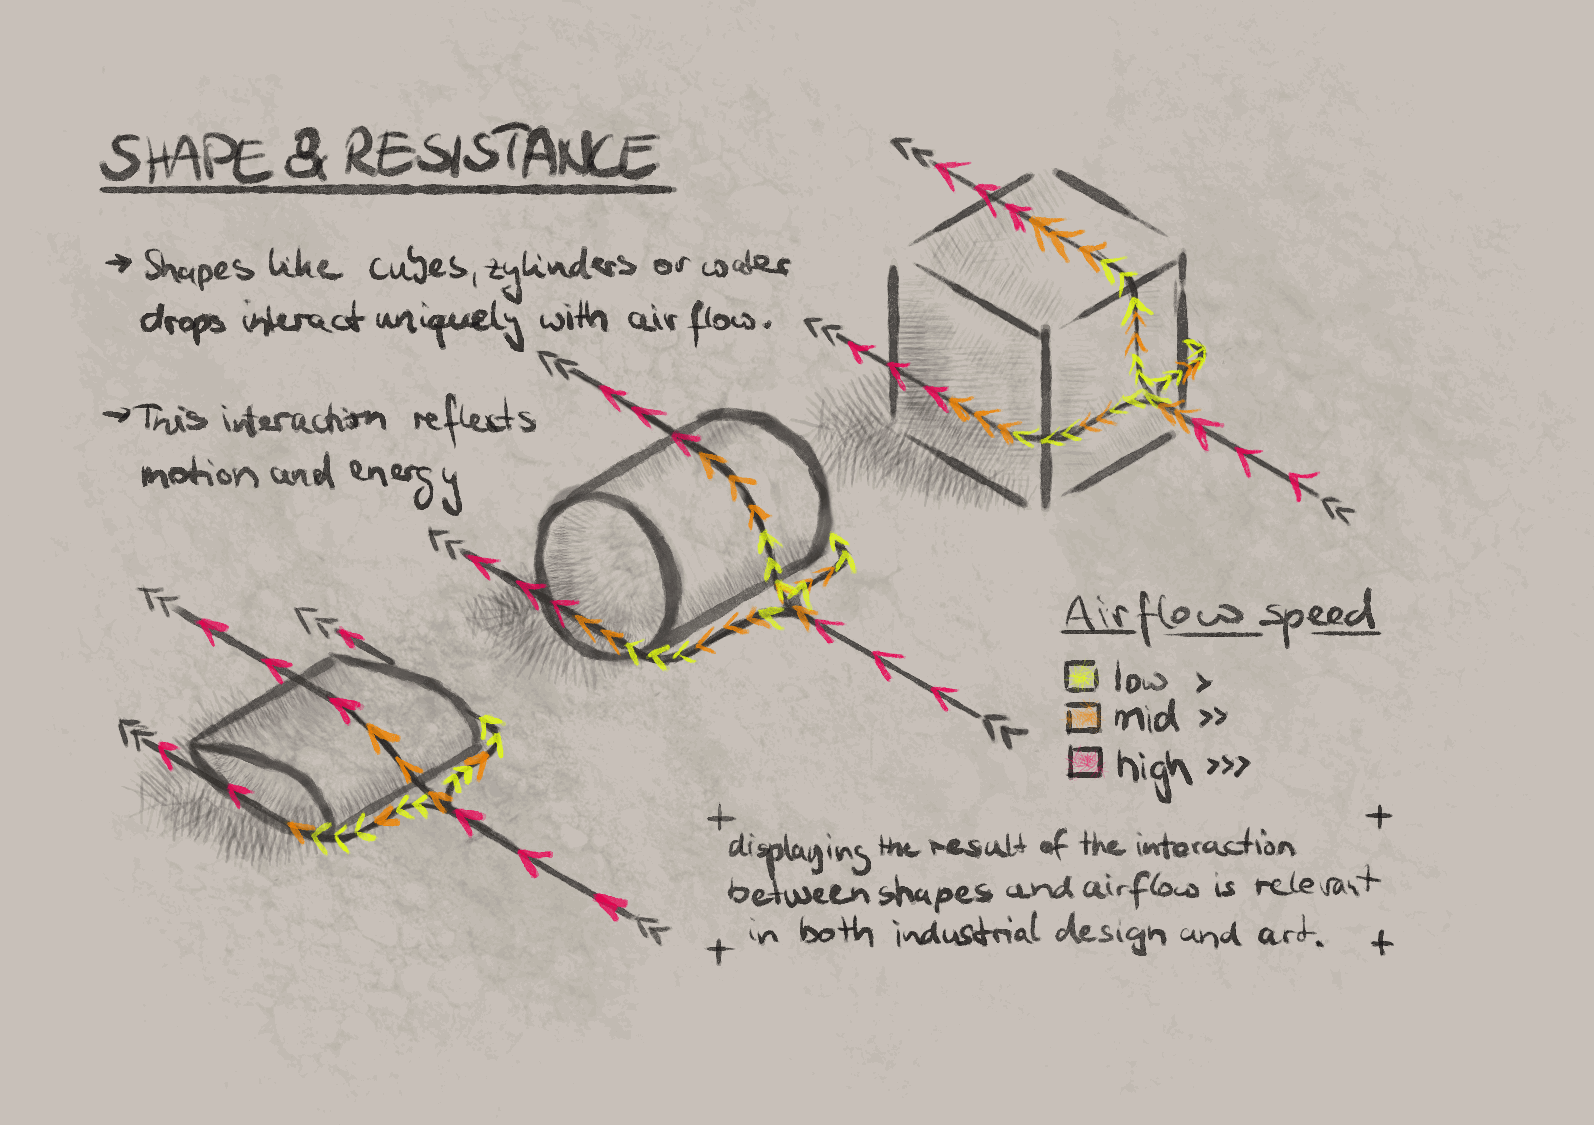 SHAPE & RESISTANCE
→ Shapes like cubes, zylinders or water
drops interact uniquely with air flow.
→ This interaction reflects
motion and energy
Airflow speed
low >
mid >>
high >>>
displaying the result of the interaction
between shapes and airflow is relevant
in both industrial design and art.